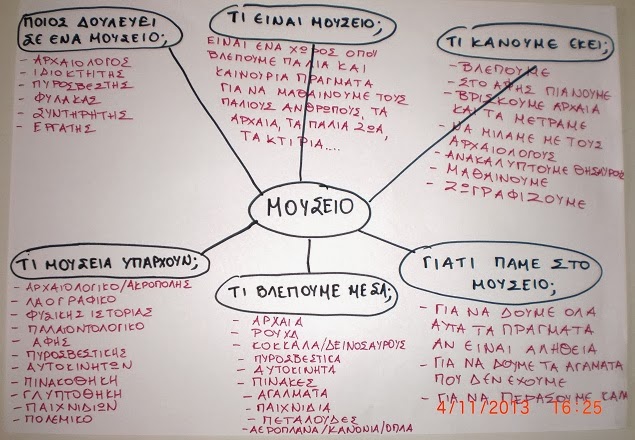 ΠΟΙΟΣ ΔΟΥΛΕΥΕΙ
ΣΕ ΕΝΑ ΜΟΥΣΕΙΟ;
- ΑΡΧΑΙΟΛΟΓΟΣ
- ΙΔΙΟΚΤΗΤΗΣ
- ΠΥΡΟΣΒΕΣΤΗΣ
- ΦΥΛΑΚΑΣ
- ΣΥΝΤΗΡΗΤΗΣ
- ΕΡΓΑΤΗΣ
ΤΙ ΕΙΝΑΙ ΜΟΥΣΕΙΟ;
ΕΙΝΑΙ ΕΝΑ ΧΩΡΟΣ ΟΠΟΥ
ΒΛΕΠΟΥΜΕ ΠΑΛΙΑ ΚΑΙ
ΚΑΙΝΟΥΡΙΑ ΠΡΑΓΜΑΤΑ
ΓΙΑ ΝΑ ΜΑΘΑΙΝΟΥΜΕ ΤΟΥΣ
ΠΑΛΙΟΥΣ ΑΝΘΡΩΠΟΥΣ, ΤΑ
ΑΡΧΑΙΑ, ΤΑ ΠΑΛΙΑ ΖΩΑ,
ΤΑ ΚΤΙΡΙΑ....
ΤΙ ΚΑΝΟΥΜΕ ΕΚΕΙ;
- ΒΛΕΠΟΥΜΕ
- ΣΤΟ ΑΦΗΣ ΠΙΑΝΟΥΜΕ
- ΒΡΙΣΚΟΥΜΕ ΑΡΧΑΙΑ
ΚΑΙ ΤΑ ΜΕΤΡΑΜΕ
- ΝΑ ΜΙΛΑΜΕ ΜΕ ΤΟΥΣ
ΑΡΧΑΙΟΛΟΓΟΥΣ
- ΑΝΑΚΑΛΥΠΤΟΥΜΕ ΘΗΣΑΥΡΟΥΣ
- ΜΑΘΑΙΝΟΥΜΕ
- ΖΩΓΡΑΦΙΖΟΥΜΕ
ΜΟΥΣΕΙΟ
ΤΙ ΜΟΥΣΕΙΑ ΥΠΑΡΧΟΥΝ;
- ΑΡΧΑΙΟΛΟΓΙΚΟ/ΑΚΡΟΠΟΛΗΣ
- ΛΑΟΓΡΑΦΙΚΟ
- ΦΥΣΙΚΗΣ ΙΣΤΟΡΙΑΣ
- ΠΑΛΑΙΟΝΤΟΛΟΓΙΚΟ
- ΑΦΗΣ
- ΠΥΡΟΣΒΕΣΤΙΚΗΣ
- ΑΥΤΟΚΙΝΗΤΩΝ
- ΠΙΝΑΚΟΘΗΚΗ
- ΓΛΥΠΤΟΘΗΚΗ
- ΠΑΙΧΝΙΔΙΩΝ
- ΠΟΛΕΜΙΚΟ
ΤΙ ΒΛΕΠΟΥΜΕ ΜΕΣΑ;
- ΑΡΧΑΙΑ
- ΡΟΥΧΑ
- ΚΟΚΚΑΛΑ/ΔΕΙΝΟΣΑΥΡΟΥΣ
- ΠΥΡΟΣΒΕΣΤΙΚΑ
- ΑΥΤΟΚΙΝΗΤΑ
- ΠΙΝΑΚΕΣ
- ΑΓΑΛΜΑΤΑ
- ΠΑΙΧΝΙΔΙΑ
- ΠΕΤΑΛΟΥΔΕΣ
- ΑΕΡΟΠΛΑΝΑ/ΚΑΝΟΝΙΑ/ΟΠΛΑ
ΓΙΑΤΙ ΠΑΜΕ ΣΤΟ
ΜΟΥΣΕΙΟ;
- ΓΙΑ ΝΑ ΔΟΥΜΕ ΟΛΑ
ΑΥΤΑ ΤΑ ΠΡΑΓΜΑΤΑ
ΑΝ ΕΙΝΑΙ ΑΛΗΘΕΙΑ
- ΓΙΑ ΝΑ ΔΟΥΜΕ ΤΑ ΑΓΑΜΑΤΑ
ΠΟΥ ΔΕΝ ΕΧΟΥΜΕ
- ΓΙΑ ΝΑ ΠΕΡΑΣΟΥΜΕ ΚΑΛΑ
4/11/2013 16:25